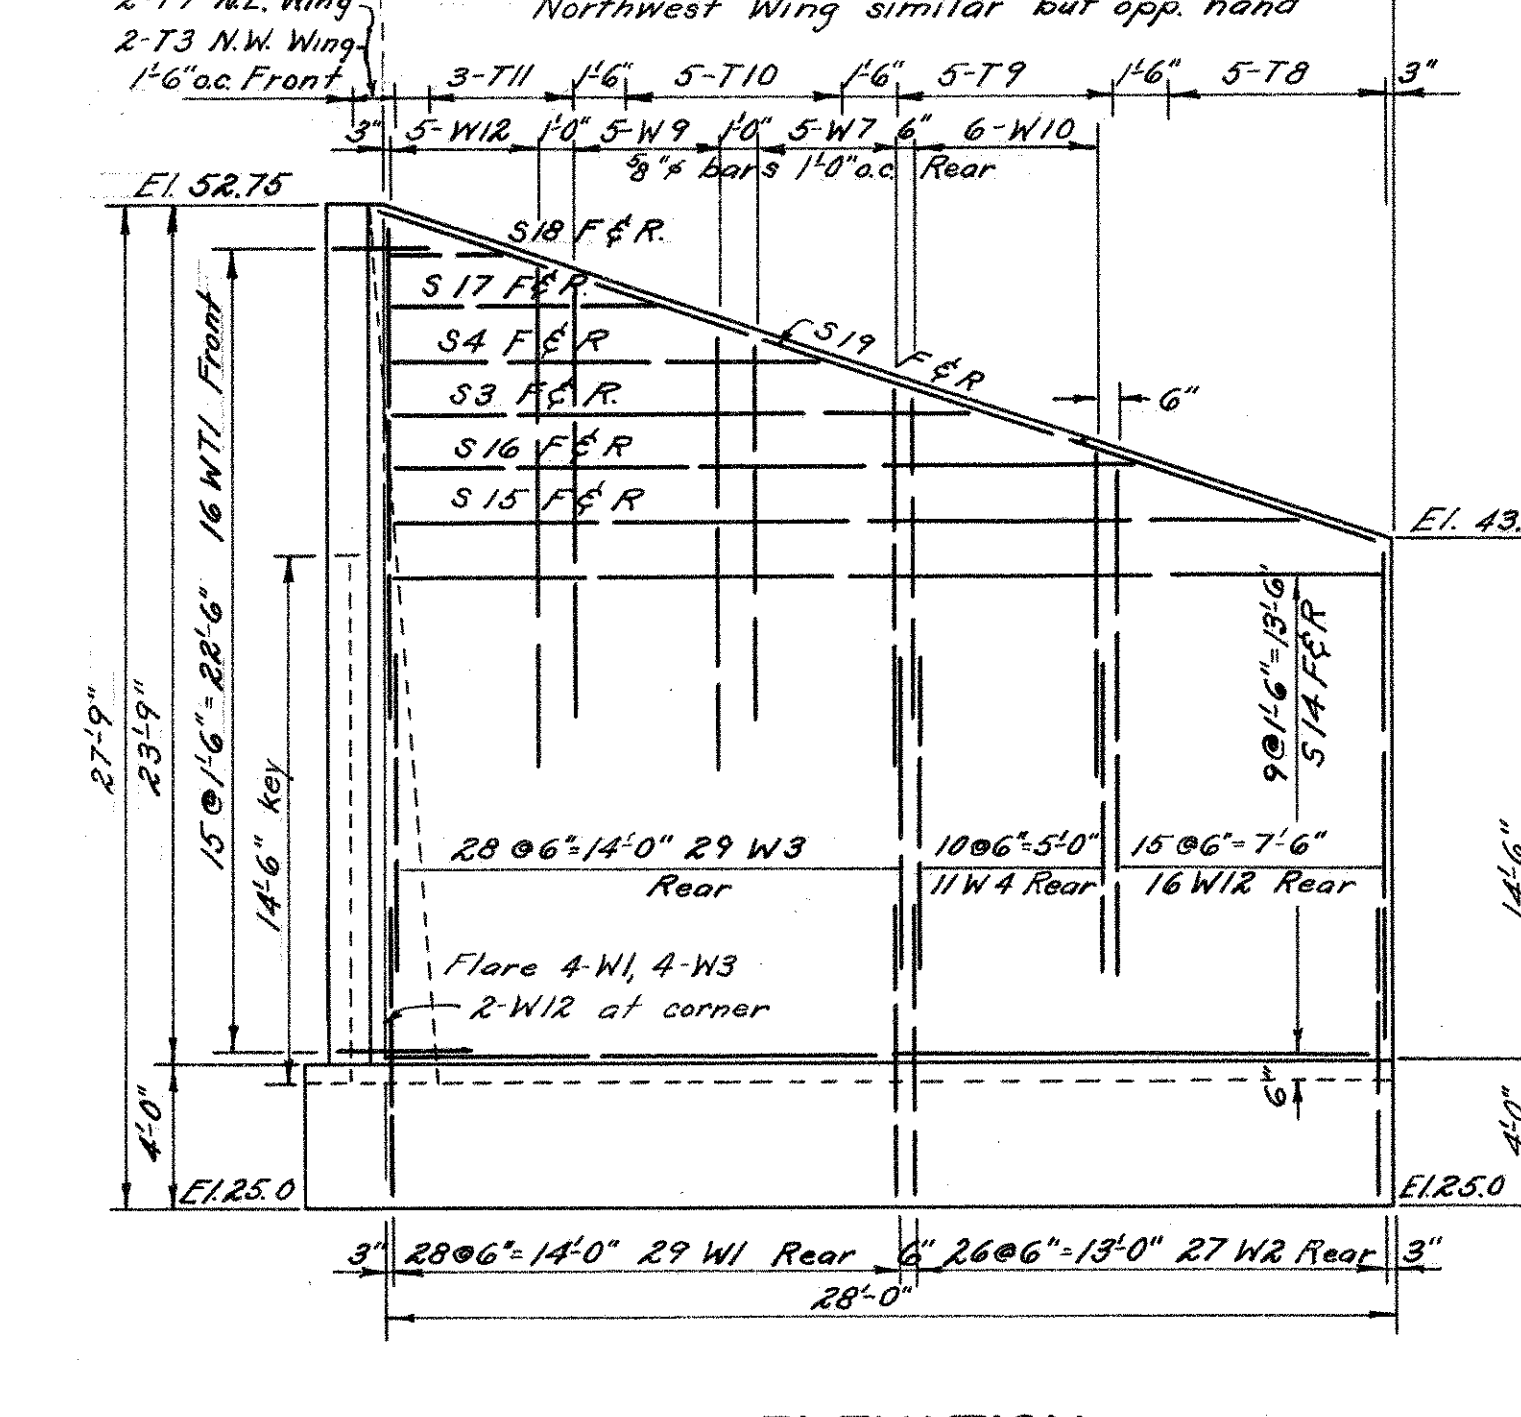 Northwest Wing similar but opp. hand
2-T3 N.W. Wing
1'-6" o.c. Front 3-T11 1'-6" 5-T10 1'-6" 5-T9 1'-6" 5-T8 3"
3" 5-W12 1'-0" 5-W9 1'-0" 5-W7 6" 6-W10
5/8"φ bars 1'-0" o.c. Rear
El. 52.75
S18 F & R.
S17 F & R.
S4 F & R
S19 F & R
S3 F & R.
6"
S16 F & R
S15 F & R
El. 43.
27'-9"
23'-9"
15 @ 1'-6" = 22'-6" 16 WT1 Front
14'-6" key
9 @ 1'-6" = 13'-6"
S14 F & R
28 @ 6" = 14'-0" 29 W3
Rear
10 @ 6" = 5'-0"
11 W4 Rear
15 @ 6" = 7'-6"
16 W12 Rear
14'-6"
Flare 4-W1, 4-W3
2-W12 at corner
4'-0"
6"
4'-0"
El. 25.0
El. 25.0
3" 28 @ 6" = 14'-0" 29 W1 Rear 6" 26 @ 6" = 13'-0" 27 W2 Rear 3"
28'-0"